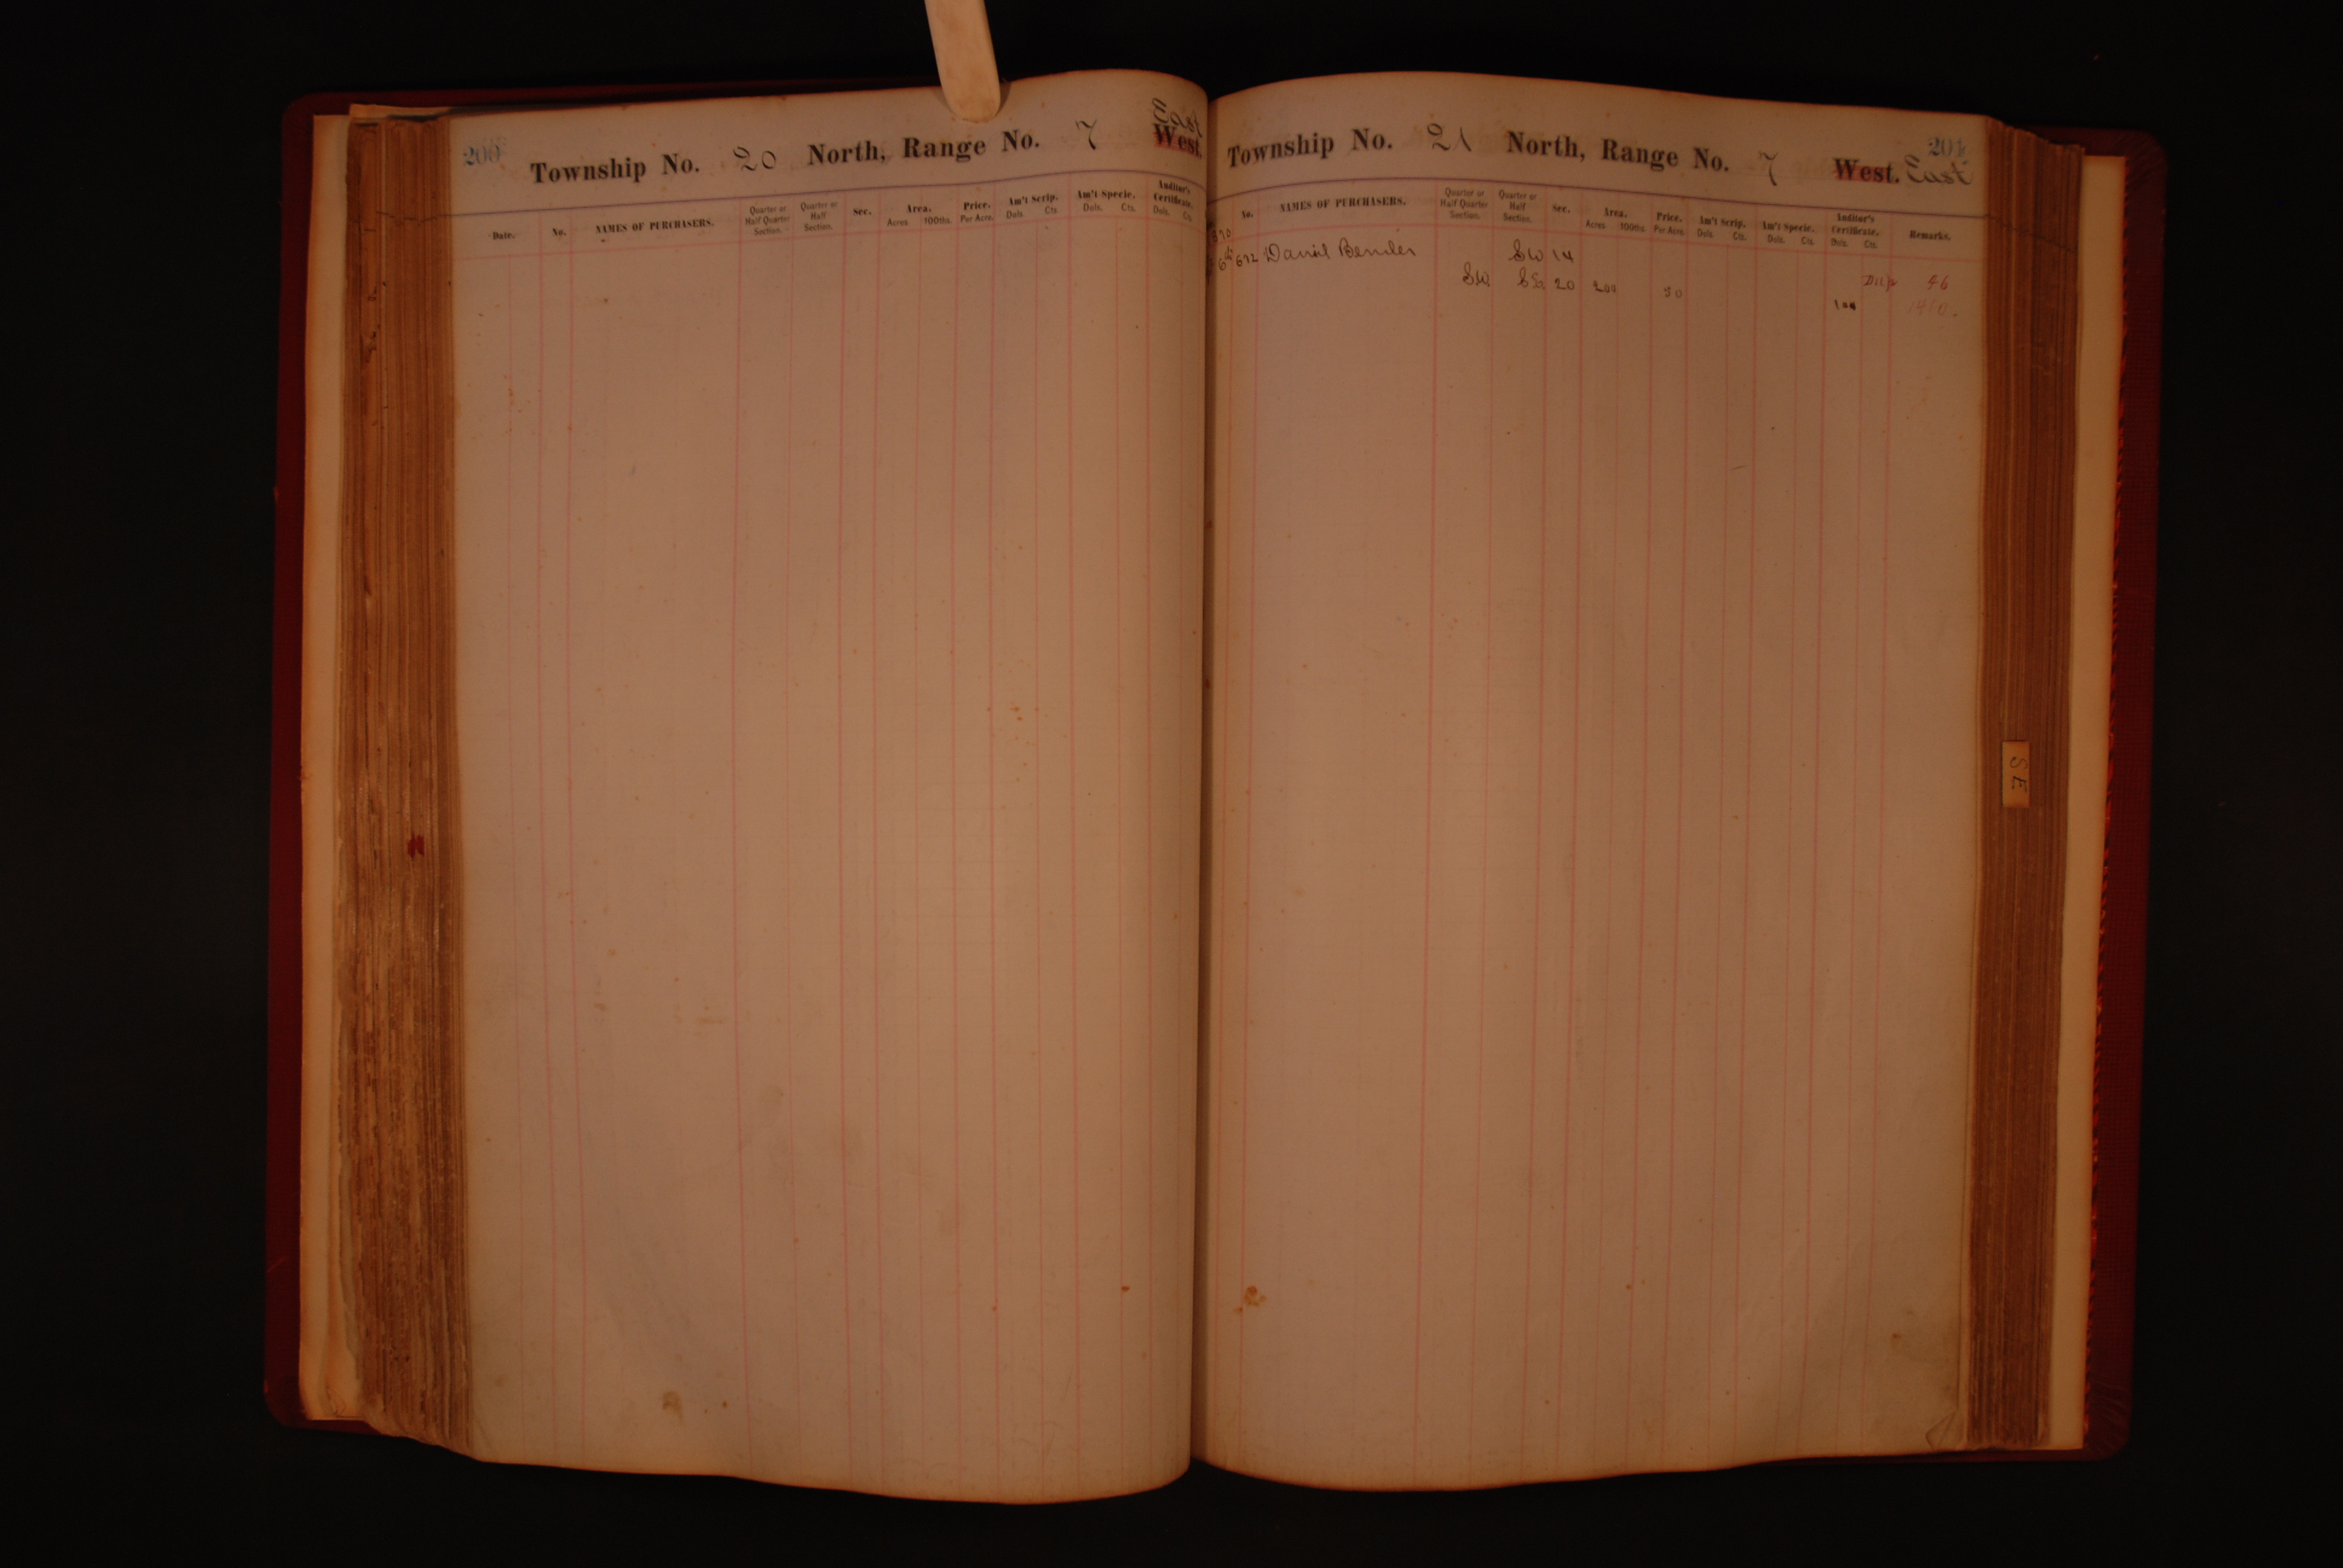 200
Township No. 20 North, Range No. 7 West. East
Date. No. NAMES OF PURCHASERS. Quarter or Half Quarter Section. Quarter or Half Section. Sec. Area. Acres 100ths. Price. Per Acre. Am't Scrip. Dols. Cts. Am't Specie. Dols. Cts. Auditor's Certificate. Dols. Cts.
201
Township No. 21 North, Range No. 7 West. East
No. NAMES OF PURCHASERS. Quarter or Half Quarter Section. Quarter or Half Section. Sec. Area. Acres 100ths. Price. Per Acre. Am't Scrip. Dols. Cts. Am't Specie. Dols. Cts. Auditor's Certificate. Dols. Cts. Remarks.
6th 692 Daniel Bender SW 14
SW SE 20 200 50 46
100 1410
SE